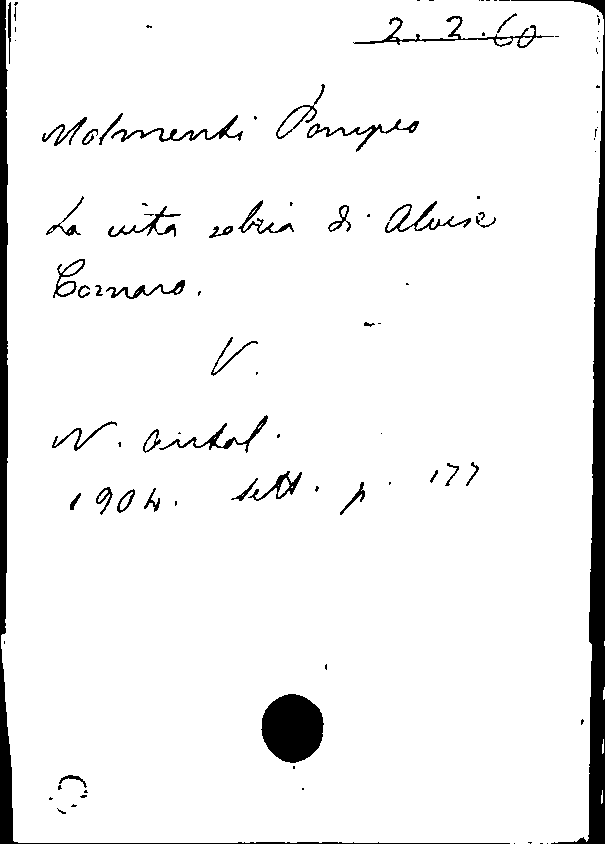 2. 2. 60
Molmenti Pompeo
La vita sobria di Alvise
Cornaro.
V.
N. antol.
1904. sett. p. 177